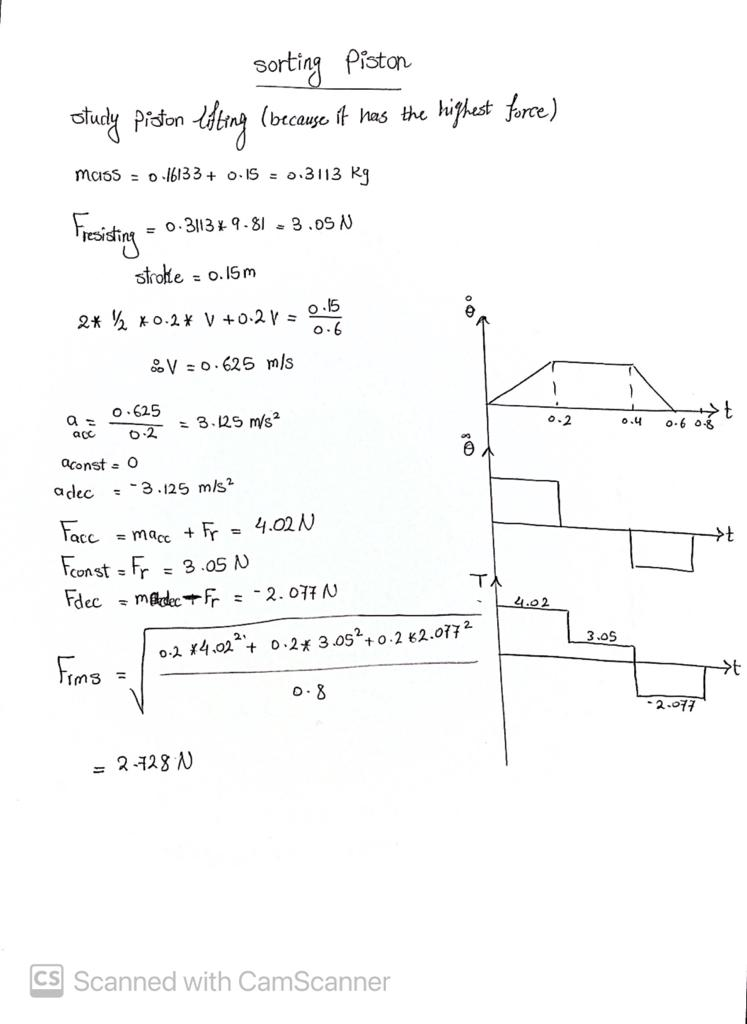 sorting Piston
study Piston lifting (because it has the highest force)
mass = 0.16133 + 0.15 = 0.3113 Kg
Fresisting = 0.3113 * 9.81 = 3.05 N
stroke = 0.15m
2* 1/2 * 0.2 * V + 0.2 V = 0.15 / 0.6
∴ V = 0.625 m/s
a acc = 0.625 / 0.2 = 3.125 m/s²
aconst = 0
adec = -3.125 m/s²
Facc = macc + Fr = 4.02 N
Fconst = Fr = 3.05 N
Fdec = madec + Fr = -2.077 N
Frms = √ 0.2 * 4.02² + 0.2 * 3.05² + 0.2 * 2.077² / 0.8
= 2.728 N
θ̇
t
0.2 0.4 0.6 0.8
θ̈
t
T
4.02
3.05
t
-2.077
CS Scanned with CamScanner